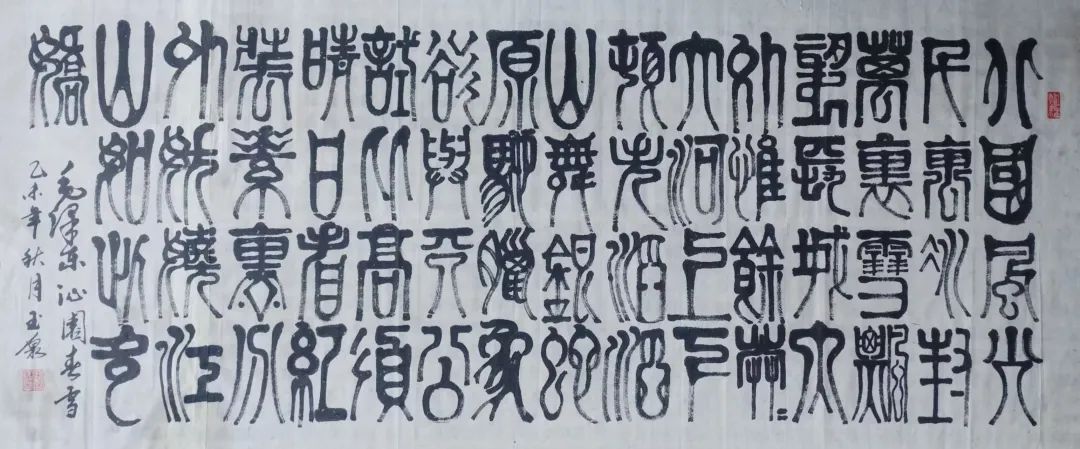 北國風光
千裏冰封
萬裏雪飄
望長城內
外惟餘莽〻
大河上下
頓失滔滔
山舞銀蛇
原馳蠟象
欲與天公
試比高須
晴日看紅
裝素裹分
外妖嬈江
山如此多
嬌
毛澤東沁園春雪
乙未年秋月玉